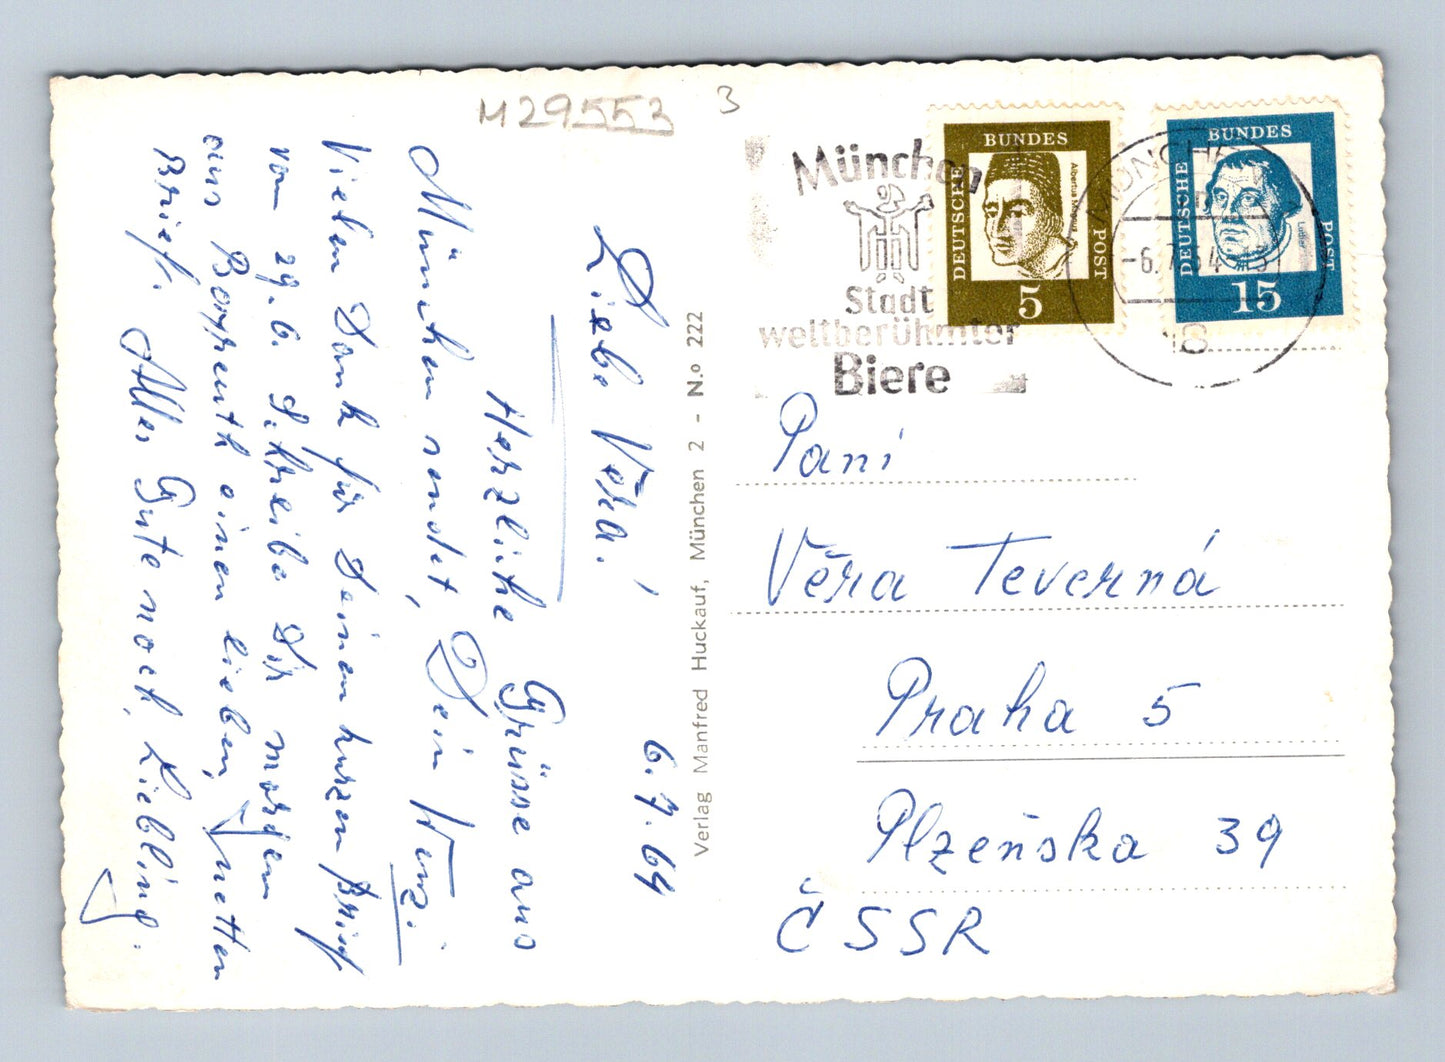 M29553
3
München
Stadt
weltberühmter
Biere
DEUTSCHE
BUNDES
POST
Albertus Magnus
5
DEUTSCHE
BUNDES
POST
Luther
15
MÜNCHEN
-6.7.64
8
Verlag Manfred Huckauf, München 2 - N.o 222
6.7.64
Liebe Věra!
Herzliche Grüsse aus
München sendet, Dein Wenzi
Vielen Dank für Deinen kurzen Brief
vom 29.6. Schreibe Dir morgen
aus Bayreuth einen lieben, netten
Brief. Alles Gute noch, Liebling.
Pani
Věra Teverná
Praha 5
Plzeňska 39
ČSSR